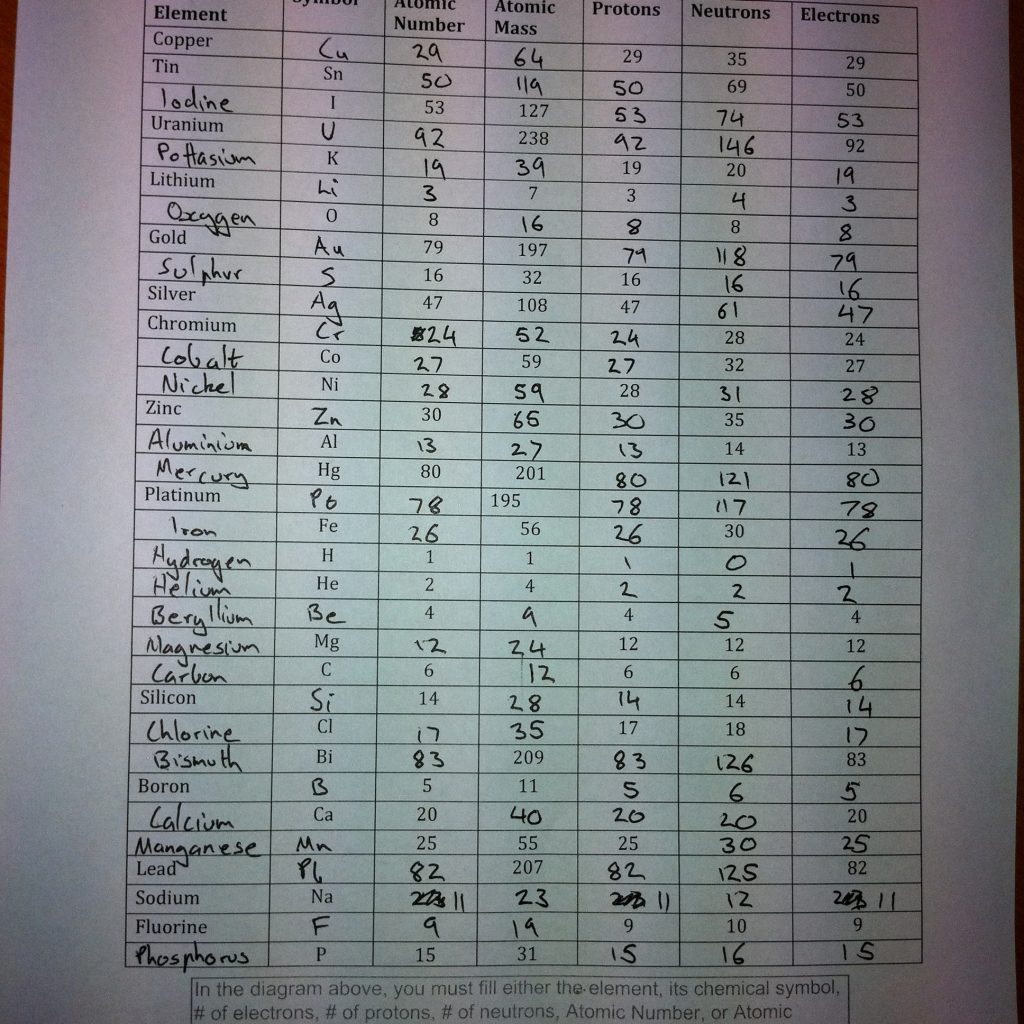 Element Symbol Atomic Number Atomic Mass Protons Neutrons Electrons
Copper Cu 29 64 29 35 29
Tin Sn 50 119 50 69 50
Iodine I 53 127 53 74 53
Uranium U 92 238 92 146 92
Pottasium K 19 39 19 20 19
Lithium Li 3 7 3 4 3
Oxygen O 8 16 8 8 8
Gold Au 79 197 79 118 79
Sulphur S 16 32 16 16 16
Silver Ag 47 108 47 61 47
Chromium Cr 24 52 24 28 24
Cobalt Co 27 59 27 32 27
Nickel Ni 28 59 28 31 28
Zinc Zn 30 65 30 35 30
Aluminium Al 13 27 13 14 13
Mercury Hg 80 201 80 121 80
Platinum 78 195 78 117 78
Iron Fe 26 56 26 30 26
Hydrogen H 1 1 1 0 1
Helium He 2 4 2 2 2
Beryllium Be 4 9 4 5 4
Magnesium Mg 12 24 12 12 12
Carbon C 6 12 6 6 6
Silicon Si 14 28 14 14 14
Chlorine Cl 17 35 17 18 17
Bismuth Bi 83 209 83 126 83
Boron B 5 11 5 6 5
Calcium Ca 20 40 20 20 20
Manganese Mn 25 55 25 30 25
Lead Pb 82 207 82 125 82
Sodium Na 11 23 11 12 11
Fluorine F 9 19 9 10 9
Phosphorus P 15 31 15 16 15
In the diagram above, you must fill either the element, its chemical symbol,
# of electrons, # of protons, # of neutrons, Atomic Number, or Atomic